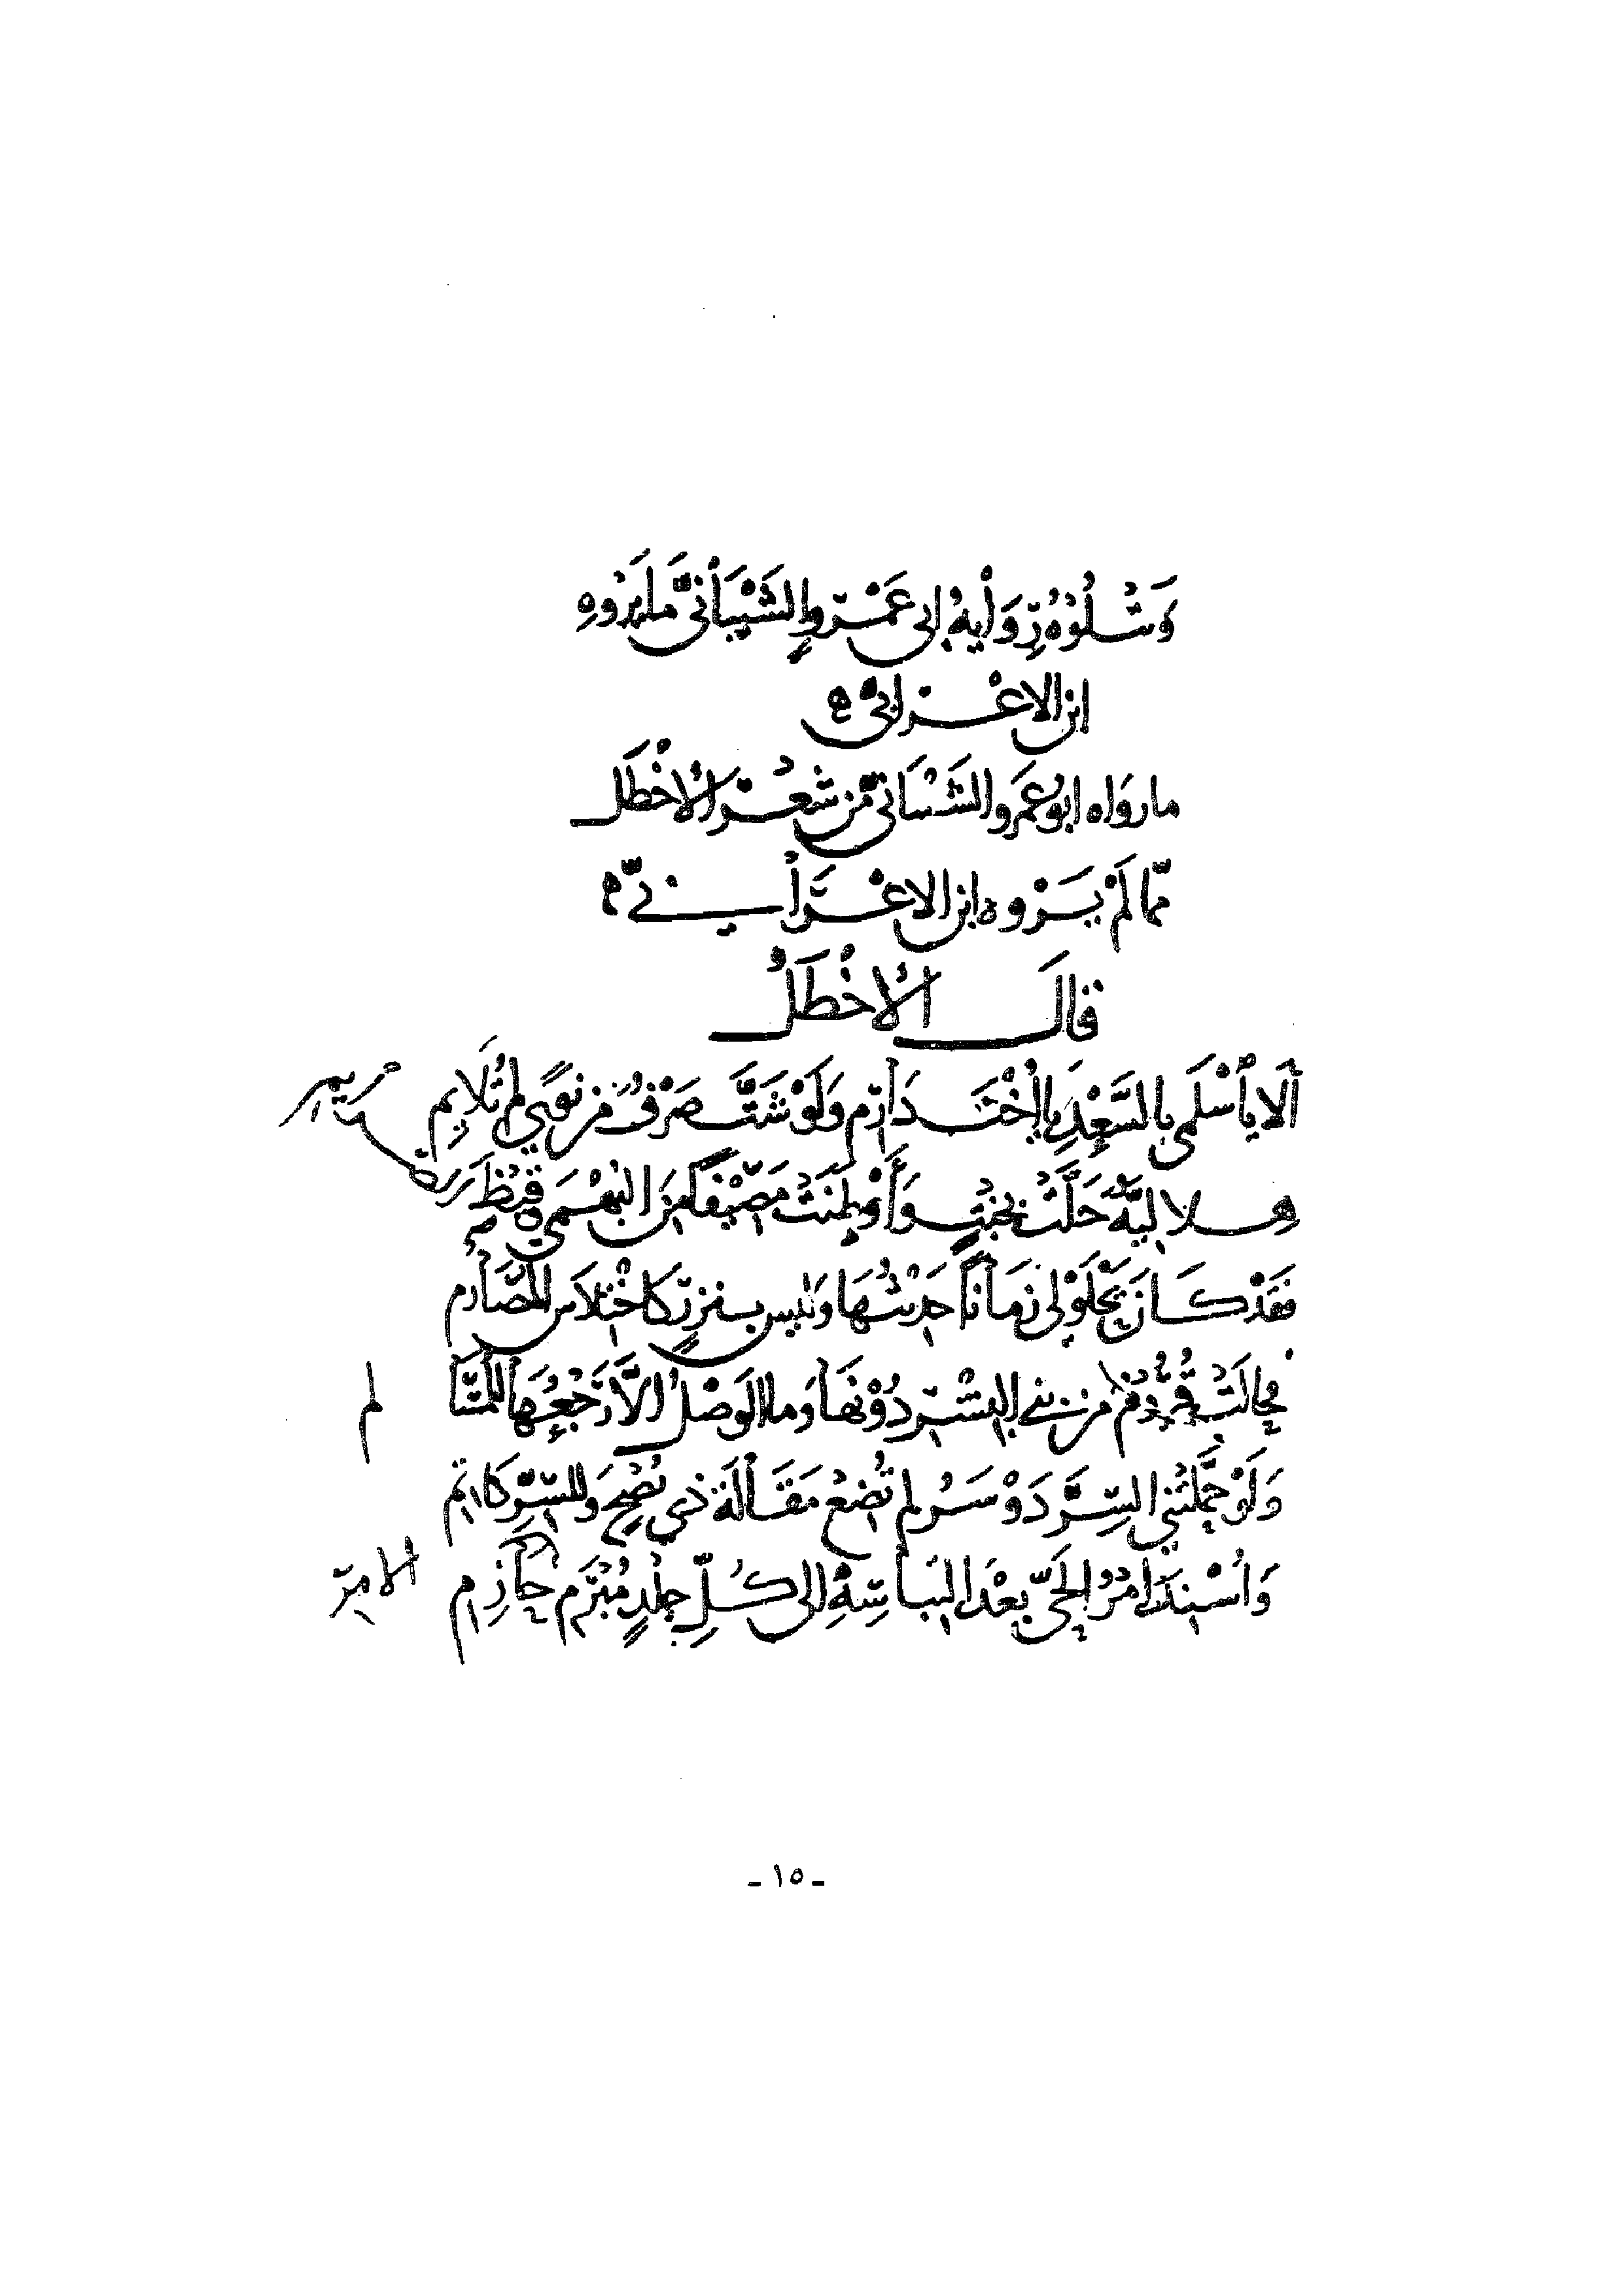 وَيَتْلُوهُ رِوَايَةُ ابى عَمْرٍو الشَّيْبَانىّ مَا لم يَرْوِهِ
ابن الاعْرابىّ
ما رَوَاه ابو عَمرو الشَّيْبَانىّ من شِعْرِ الأَخْطَل
مِمّا لَمْ يَرْوِه ابن الاعْرَابيّ
قالَ الاخْطَلُ
أَلا يا أسْلَمى بالسَّعْدِ يا أُخْتَ دَارِمِ وَلَوْ شَتَّ صَرْفٌ من نوًى لم تُلايِم
حَلَّتْ وَأَوْطَنَتْ مَصِيْفًا مِن
فقَدْ كَانَ يَحْلَوْلى زَمَانًا حَدِيْثُهَا وَليس بنزرٍ كاخْتِلاسِ المُصَارم
فحالَتْ قُرُومٌ من بني البِشْرِ دُوْنَها وَما الوَصْلُ الاَّ رَجْعُهَا للمُسَا لم
وَلَوْ حَمَّلَتْني السِّرَّ دَوْسَرُ لم تُضِعْ مَقَالَةَ ذي نُصْحٍ وللسِّرِّ كاتم
وَأُسْنِدَ امْرُ الحَىِّ بعْدَ التباسِهِ الى كُلِّ جلْدٍ مُبْرَمِ حازِم الامر
- ١٥ -